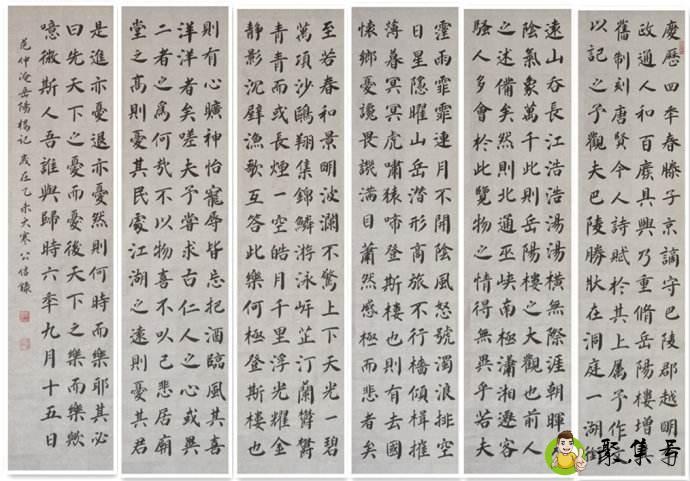 慶歷四年春滕子京謫守巴陵郡越明年
政通人和百廢具興乃重脩岳陽樓增其
舊制刻唐賢今人詩賦於其上屬予作文
以記之予觀夫巴陵勝狀在洞庭一湖銜
遠山吞長江浩浩湯湯橫無際涯朝暉夕
陰氣象萬千此則岳陽樓之大觀也前人
之述備矣然則北通巫峽南極瀟湘遷客
騷人多會於此覽物之情得無異乎若夫
霪雨霏霏連月不開陰風怒號濁浪排空
日星隱曜山岳潛形商旅不行檣傾楫摧
薄暮冥冥虎嘯猿啼登斯樓也則有去國
懷鄉憂讒畏譏滿目蕭然感極而悲者矣
至若春和景明波瀾不驚上下天光一碧
萬頃沙鷗翔集錦鱗游泳岸芷汀蘭鬱鬱
青青而或長煙一空皓月千里浮光耀金
靜影沉璧漁歌互答此樂何極登斯樓也
則有心曠神怡寵辱皆忘把酒臨風其喜
洋洋者矣嗟夫予嘗求古仁人之心或異
二者之為何哉不以物喜不以己悲居廟
堂之高則憂其民處江湖之遠則憂其君
是進亦憂退亦憂然則何時而樂耶其必
曰先天下之憂而憂後天下之樂而樂歟
噫微斯人吾誰與歸時六年九月十五日
范仲淹岳陽樓記 歲在乙未大寒公信錄
聚集号